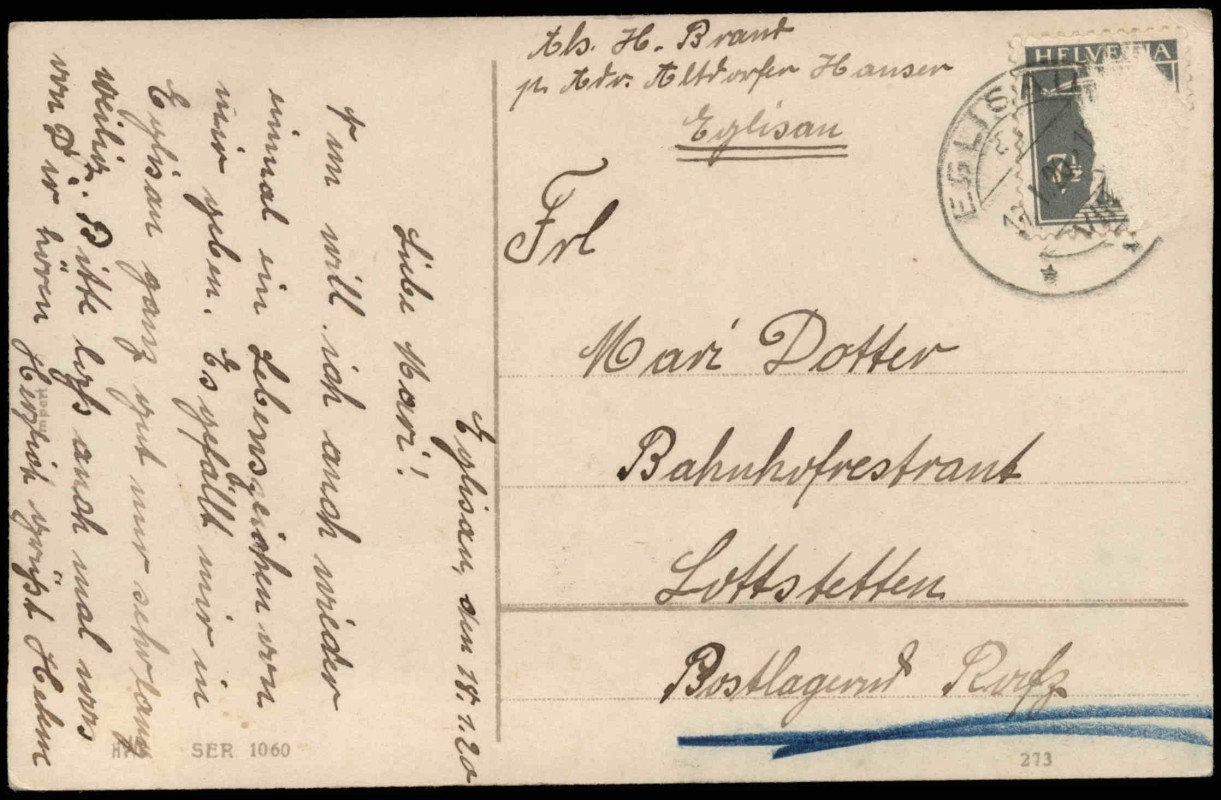 Abs. H. Brand
p. Adr. Altdorfer Hauser
Eglisau
HELVETIA
EGLISAU
7½
Frl
Mari Dotter
Bahnhofrestrant
Lottstetten
Postlagernd Rafz
273
Eglisau, den 18.1.20
Liebe Mari!
Nun will ich auch wieder
einmal ein Lebenszeichen von
mir geben. Es gefällt mir in
Eglisau ganz gut nur sehr lang
weilig. Bitte lass auch mal was
von Dir hören Herzlich grüsst
SER 1060
Import